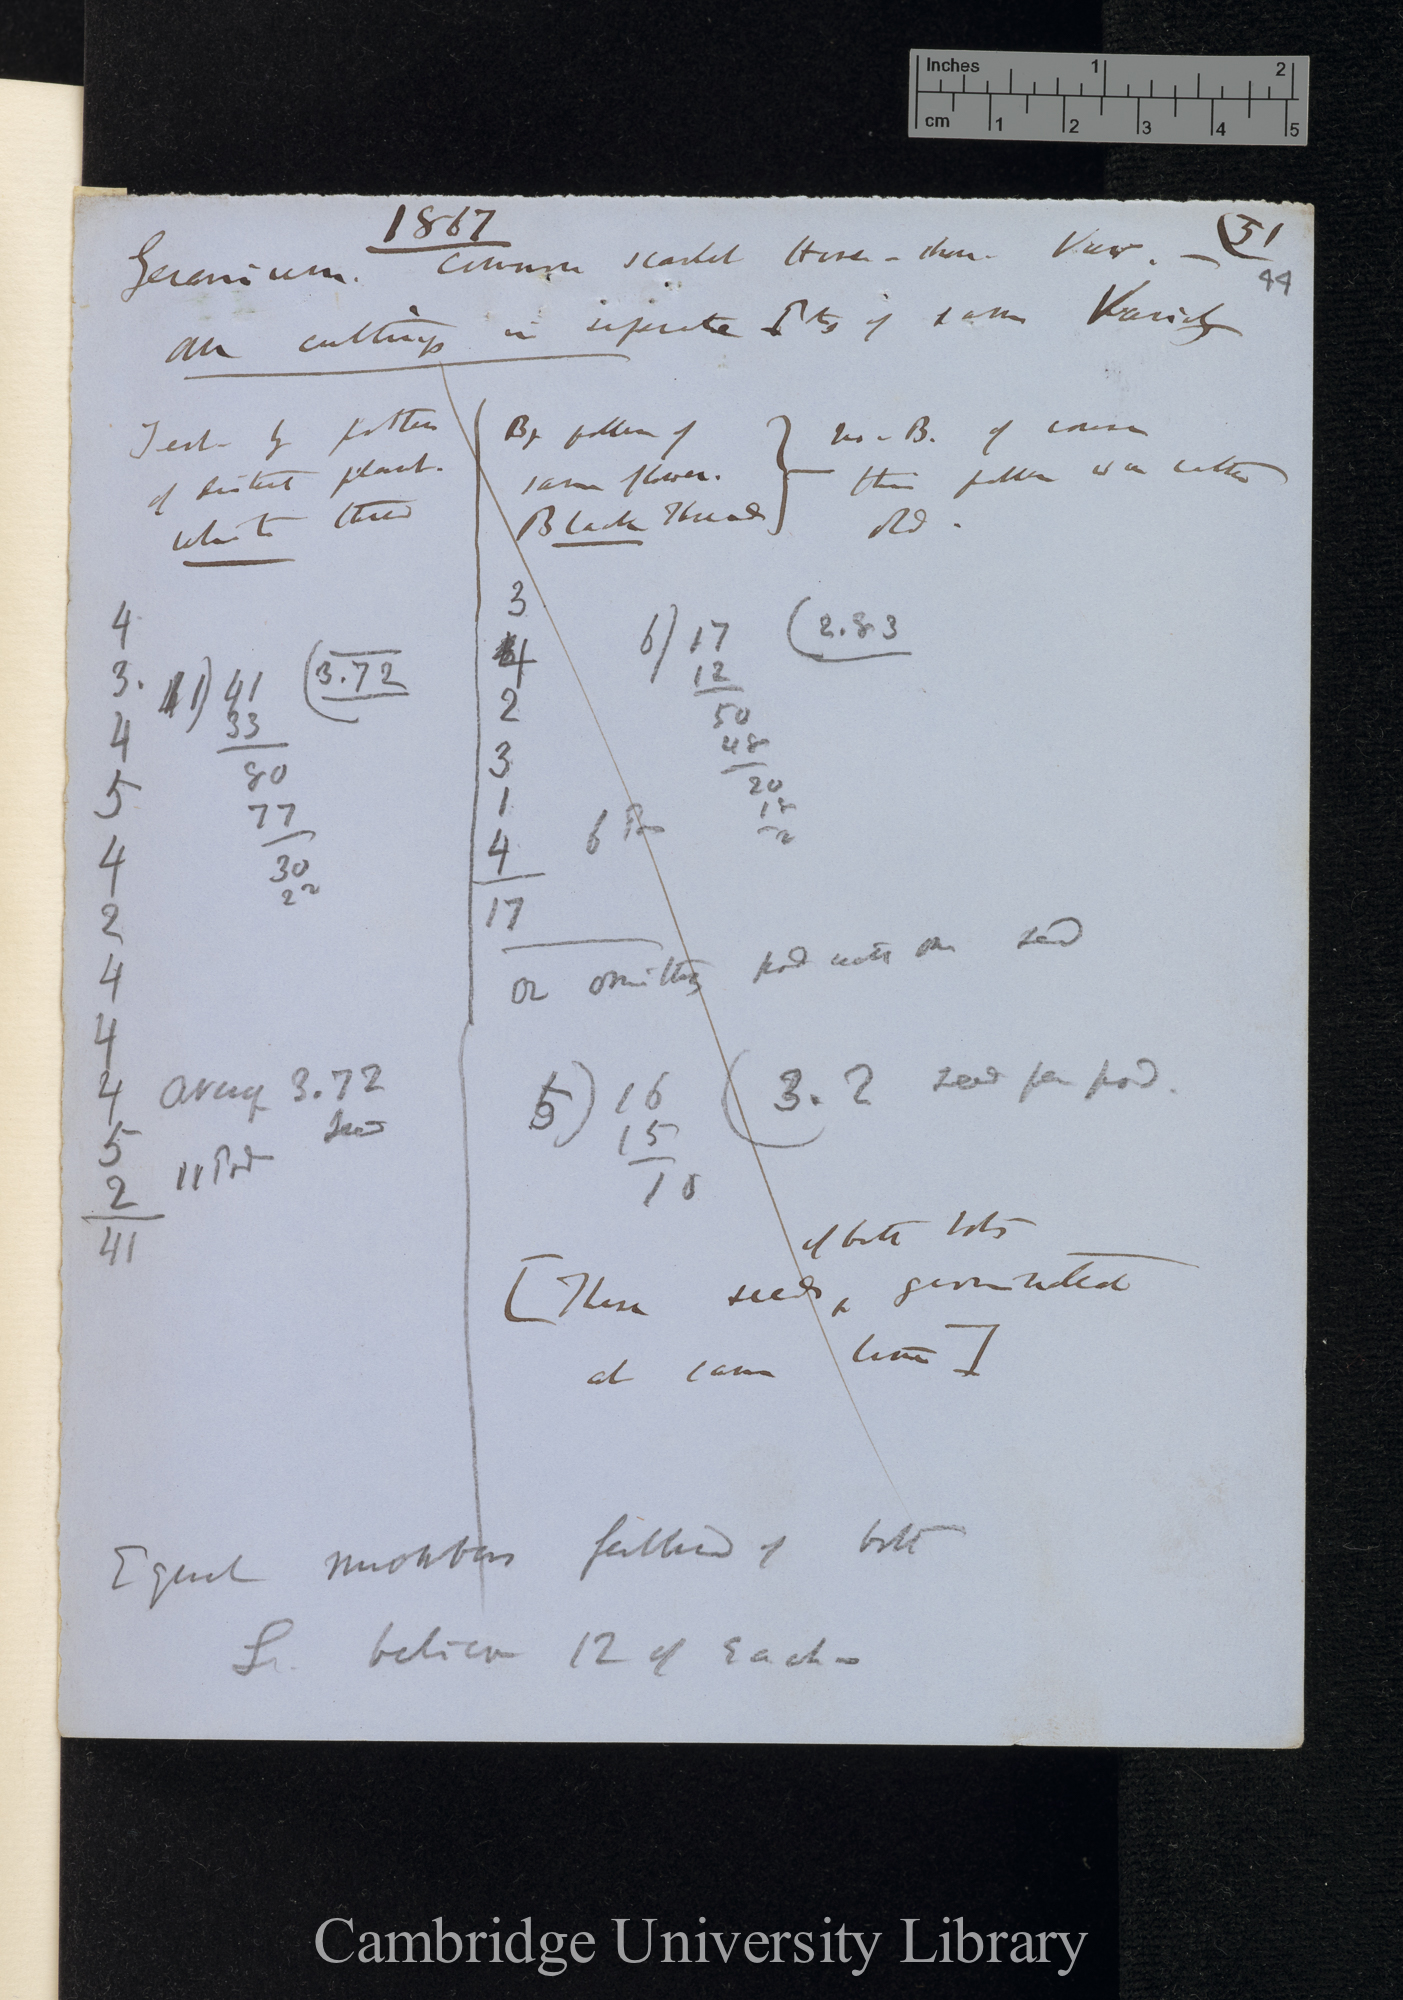 Inches 1 2
cm 1 2 3 4 5
1867
(51
44
Geranium. Common scarlet Horse-shoe Var. —
all cuttings in separate Pots of same Variety
Fert. by pollen
of distinct plant.
white thread
4
3.
4
5
4
2
4
4
4
5
2
41
11) 41 (3.72
33
80
77
30
22
average 3.72
seed
11 Pods
By pollen of
same flower.
Black Thread
N.B. of course
this pollen was rather
old.
3
4
2
3
1
4
17
6 Pods
6) 17 (2.83
12
50
48
20
18
2
or omitting pod with one seed
5) 16 (3.2 seed per pod.
15
10
of both lots
[These seeds ^ germinated
at same time]
Equal numbers fertilised of both
I believe 12 of each
Cambridge University Library